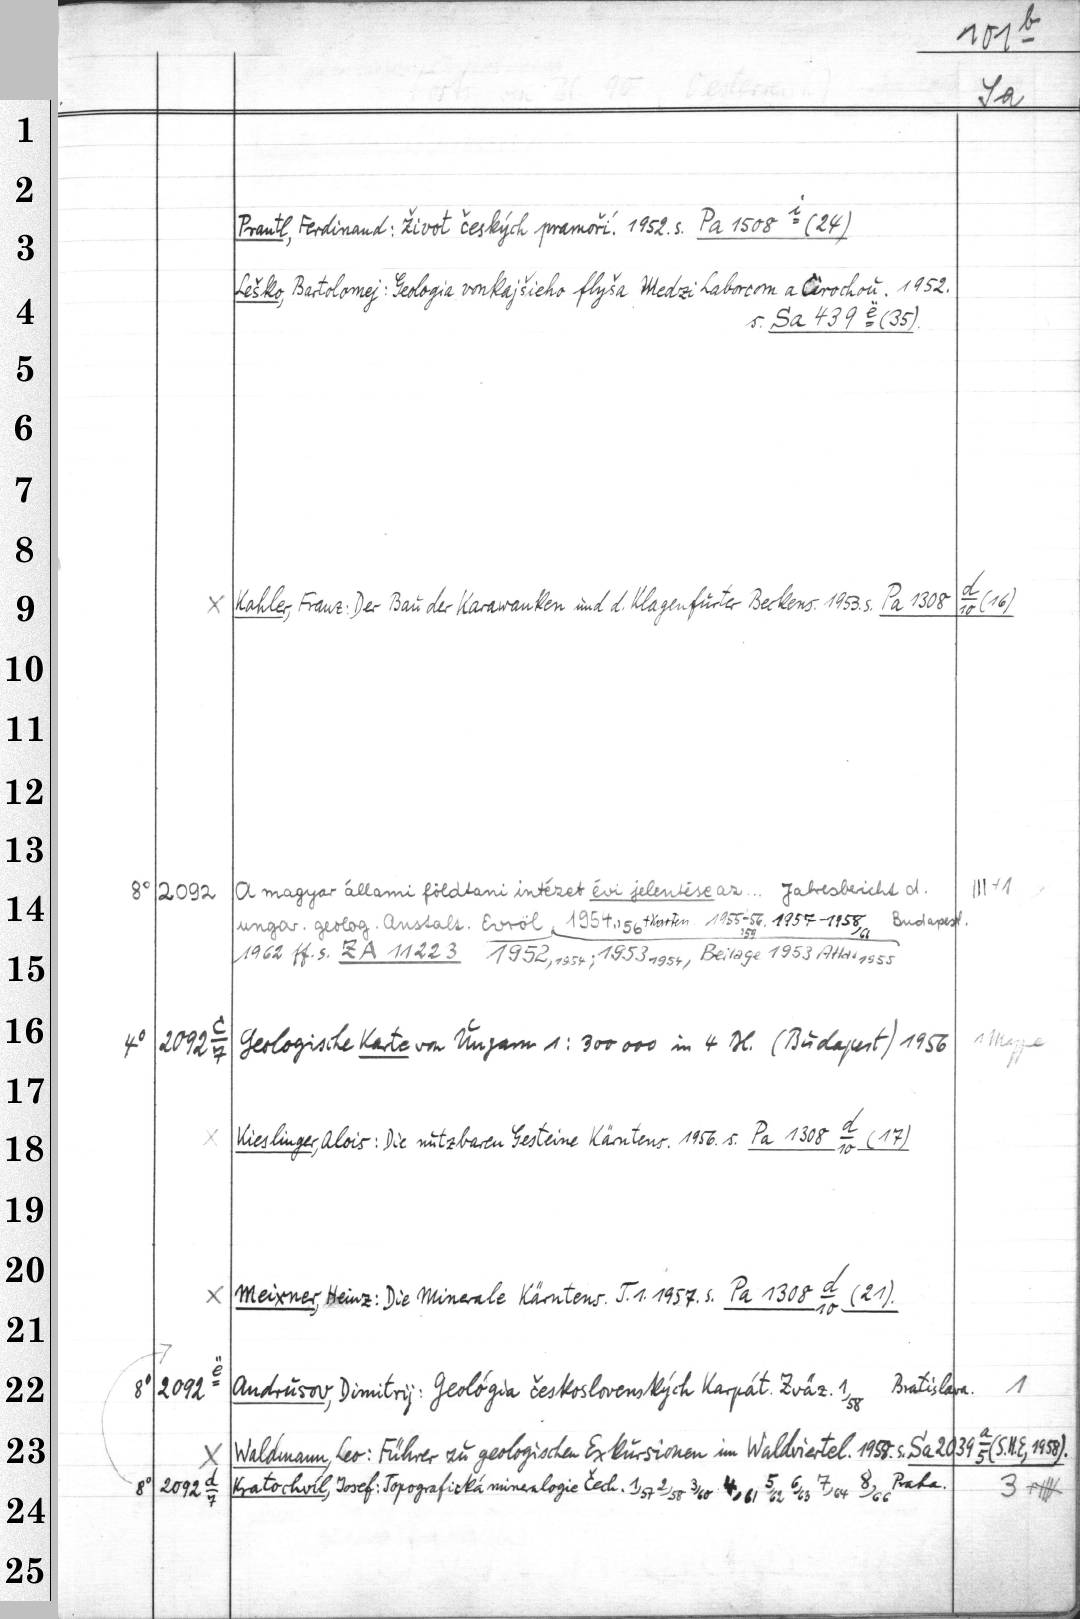 101 b
Sa
1
2
Prantl, Ferdinand: Život českých pramoří. 1952. s. Pa 1508 i (24)
3
Leško, Bartolomej: Geologia vonkajšieho flyša Medzi Laborcom a Čirochou. 1952.
4
s. Sa 439 ë (35).
5
6
7
8
9 × Kahler, Franz: Der Bau der Karawanken und d. Klagenfurter Beckens. 1953. s. Pa 1308 d/10 (16)
10
11
12
13
8° 2092 A magyar állami földtani intézet évi jelentése az ... Jahresbericht d. III+1
14
ungar. geolog. Anstalt. Evröl 1954, 56 +Karten 1955-56, 1957-1958/61 Budapest.
59
15 1962 ff. s. ZA 11223 1952,1954; 1953 1954, Beilage 1953 1955
16 4° 2092 c/7 Geologische Karte von Ungarn 1:300 000 in 4 Bl. (Budapest) 1956 1 Mappe
17
18 × Kieslinger, Alois: Die nutzbaren Gesteine Kärntens. 1956. s. Pa 1308 d/10 (17)
19
20
× Meixner, Heinz: Die Minerale Kärntens. T. 1. 1957. s. Pa 1308 d/10 (21).
21
22 8° 2092 ë Andrusov, Dimitrij: Geológia československých Karpát. Zväz. 1/58 Bratislava. 1
23 × Waldmann, Leo: Führer zu geologischen Exkursionen im Waldviertel. 1958. s. Sa 2039 a/5 (S.H.E, 1958).
8° 2092 d/7 Kratochvíl, Josef: Topografická mineralogie Čech. 1/57 2/58 3/60 4/61 5/62 6/63 7/64 8/66 Praha. 3
24
25